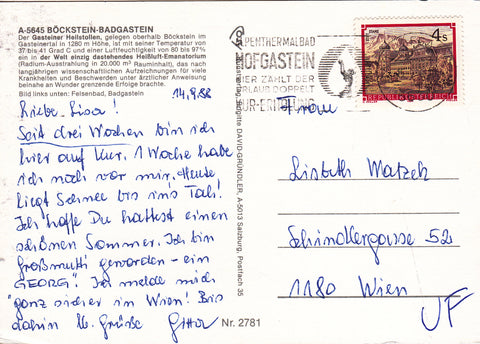 A-5645 BÖCKSTEIN-BADGASTEIN
Der Gasteiner Heilstollen, gelegen oberhalb Böckstein im
Gasteinertal in 1280 m Höhe, ist mit seiner Temperatur von
37 bis 41 Grad C und einer Luftfeuchtigkeit von 80 bis 97%
ein in der Welt einzig dastehendes Heißluft-Emanatorium
(Radium-Ausstrahlung in 20.000 m³ Rauminhalt), das nach
langjährigen wissenschaftlichen Aufzeichnungen für viele
Krankheiten und Beschwerden unter ärztlicher Anweisung
beinahe an Wunder grenzende Erfolge brachte.
Bild links unten: Felsenbad, Badgastein
14.9.88
Liebe Lisa!
Seit drei Wochen bin ich
hier auf Kur. 1 Woche habe
ich noch vor mir. Heute
liegt Schnee bis ins Tal!
Ich hoffe Du hattest einen
schönen Sommer. Ich bin
Großmutti geworden - ein
GEORG! Ich melde mich
ganz sicher in Wien! Bis
dahin lb. Grüße
Verlag Brigitte DAVID-GRÜNDLER, A-5013 Salzburg, Postfach 35
Nr. 2781
ALPENTHERMALBAD
HOFGASTEIN
HIER ZÄHLT DER
URLAUB DOPPELT
KUR-ERHOLUNG
4 S
STIFT STAMS
REPUBLIK ÖSTERREICH
Frau
Lisbeth Watzek
Schindlergasse 52
1180 Wien
UF